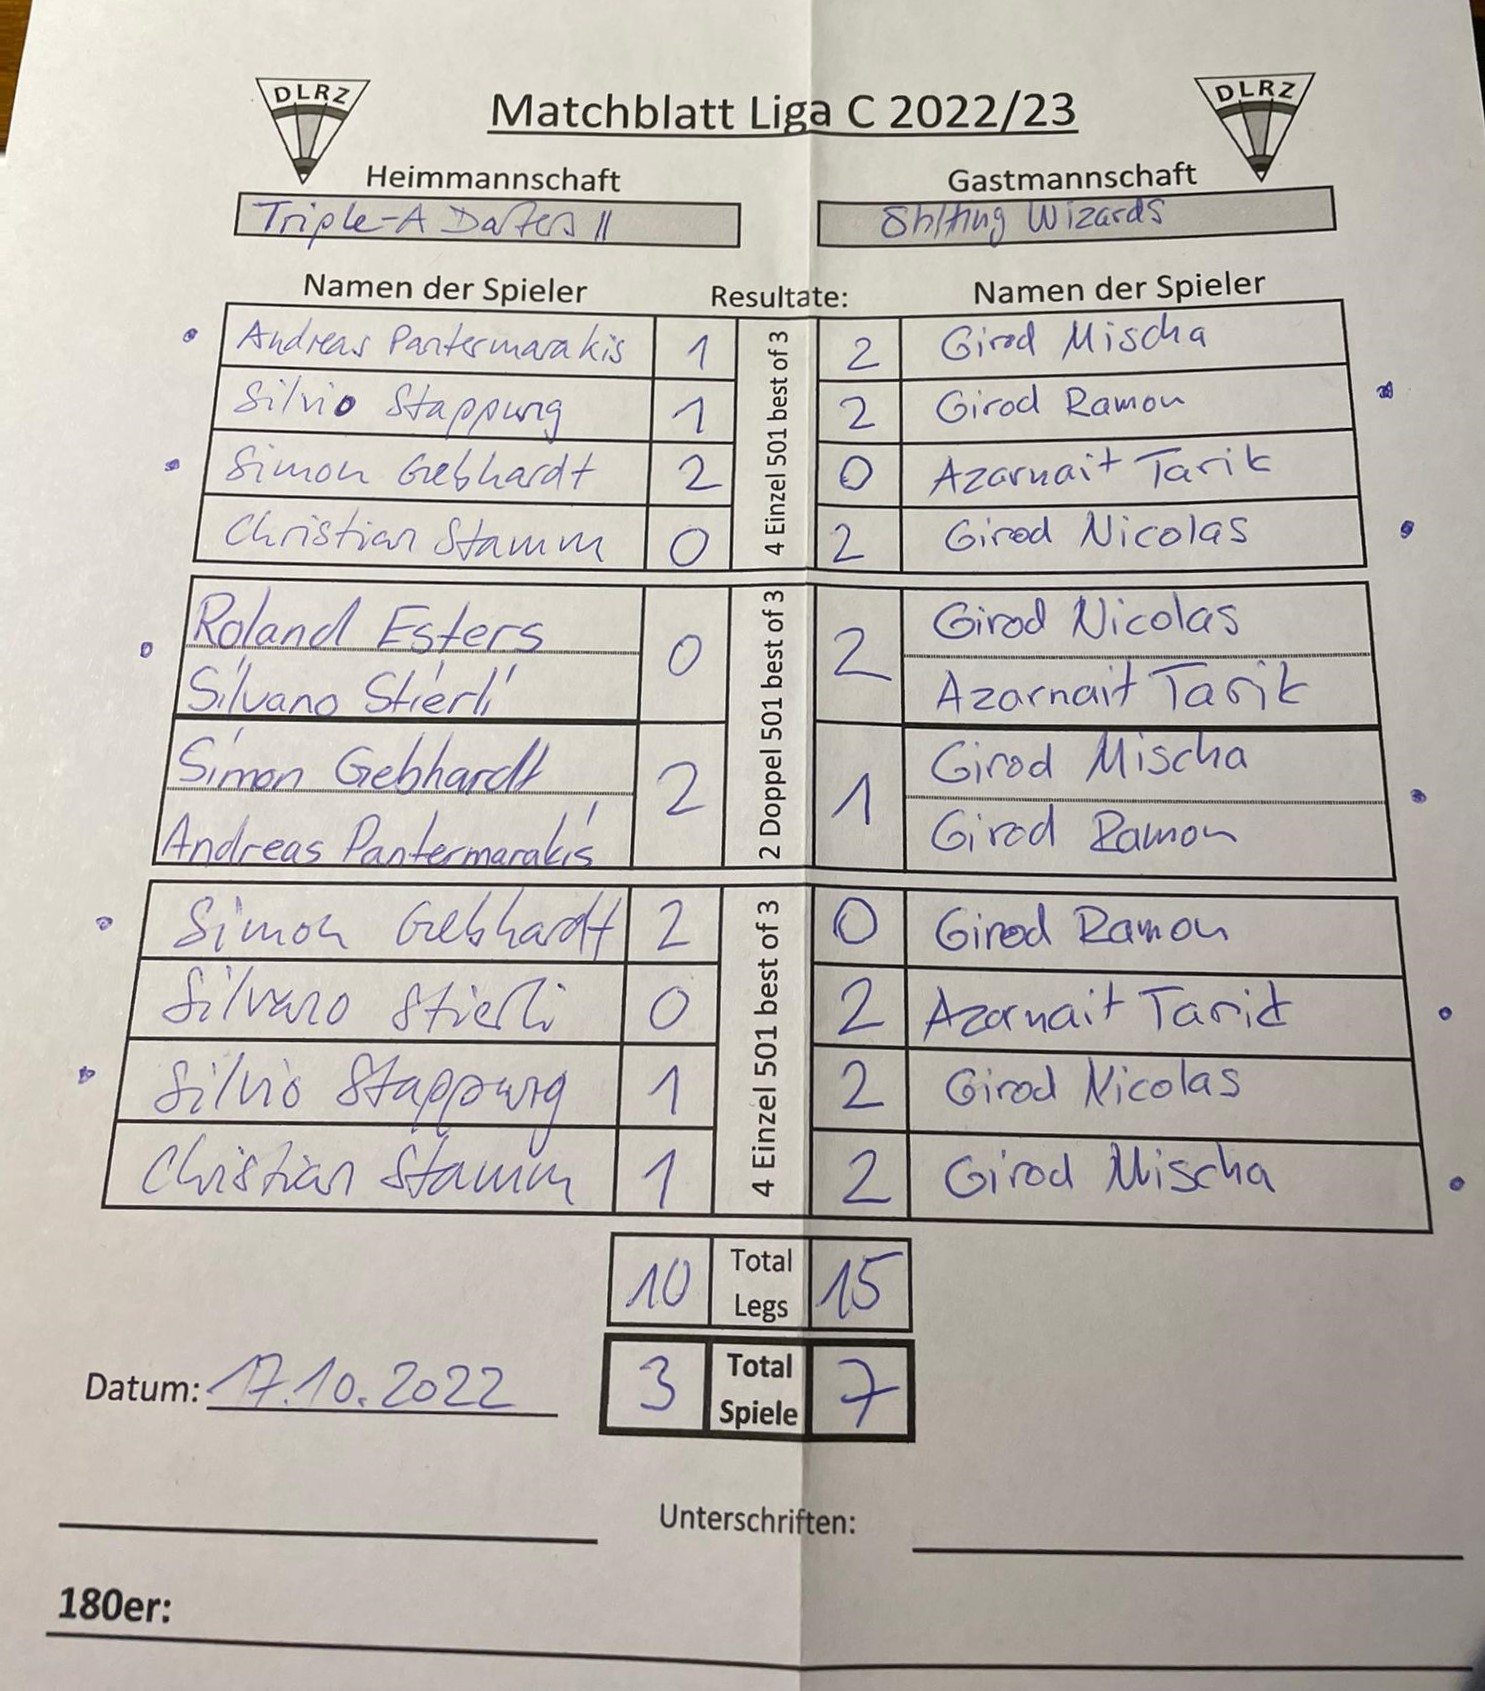 DLRZ
Matchblatt Liga C 2022/23
DLRZ
Heimmannschaft Gastmannschaft
Triple-A Darters II Shitting Wizards
Namen der Spieler Resultate: Namen der Spieler
4 Einzel 501 best of 3
Andreas Pantermarakis 1 2 Girod Mischa
Silvio Stappung 1 2 Girod Ramon
Simon Gebhardt 2 0 Azarnait Tarik
Christian Stamm 0 2 Girod Nicolas
2 Doppel 501 best of 3
Roland Esters 0 2 Girod Nicolas
Silvano Stierli Azarnait Tarik
Simon Gebhardt 2 1 Girod Mischa
Andreas Pantermarakis Girod Ramon
4 Einzel 501 best of 3
Simon Gebhardt 2 0 Girod Ramon
Silvano Stierli 0 2 Azarnait Tarik
Silvio Stappung 1 2 Girod Nicolas
Christian Stamm 1 2 Girod Mischa
10 Total Legs 15
Datum: 17.10.2022 3 Total Spiele 7
Unterschriften:
180er: